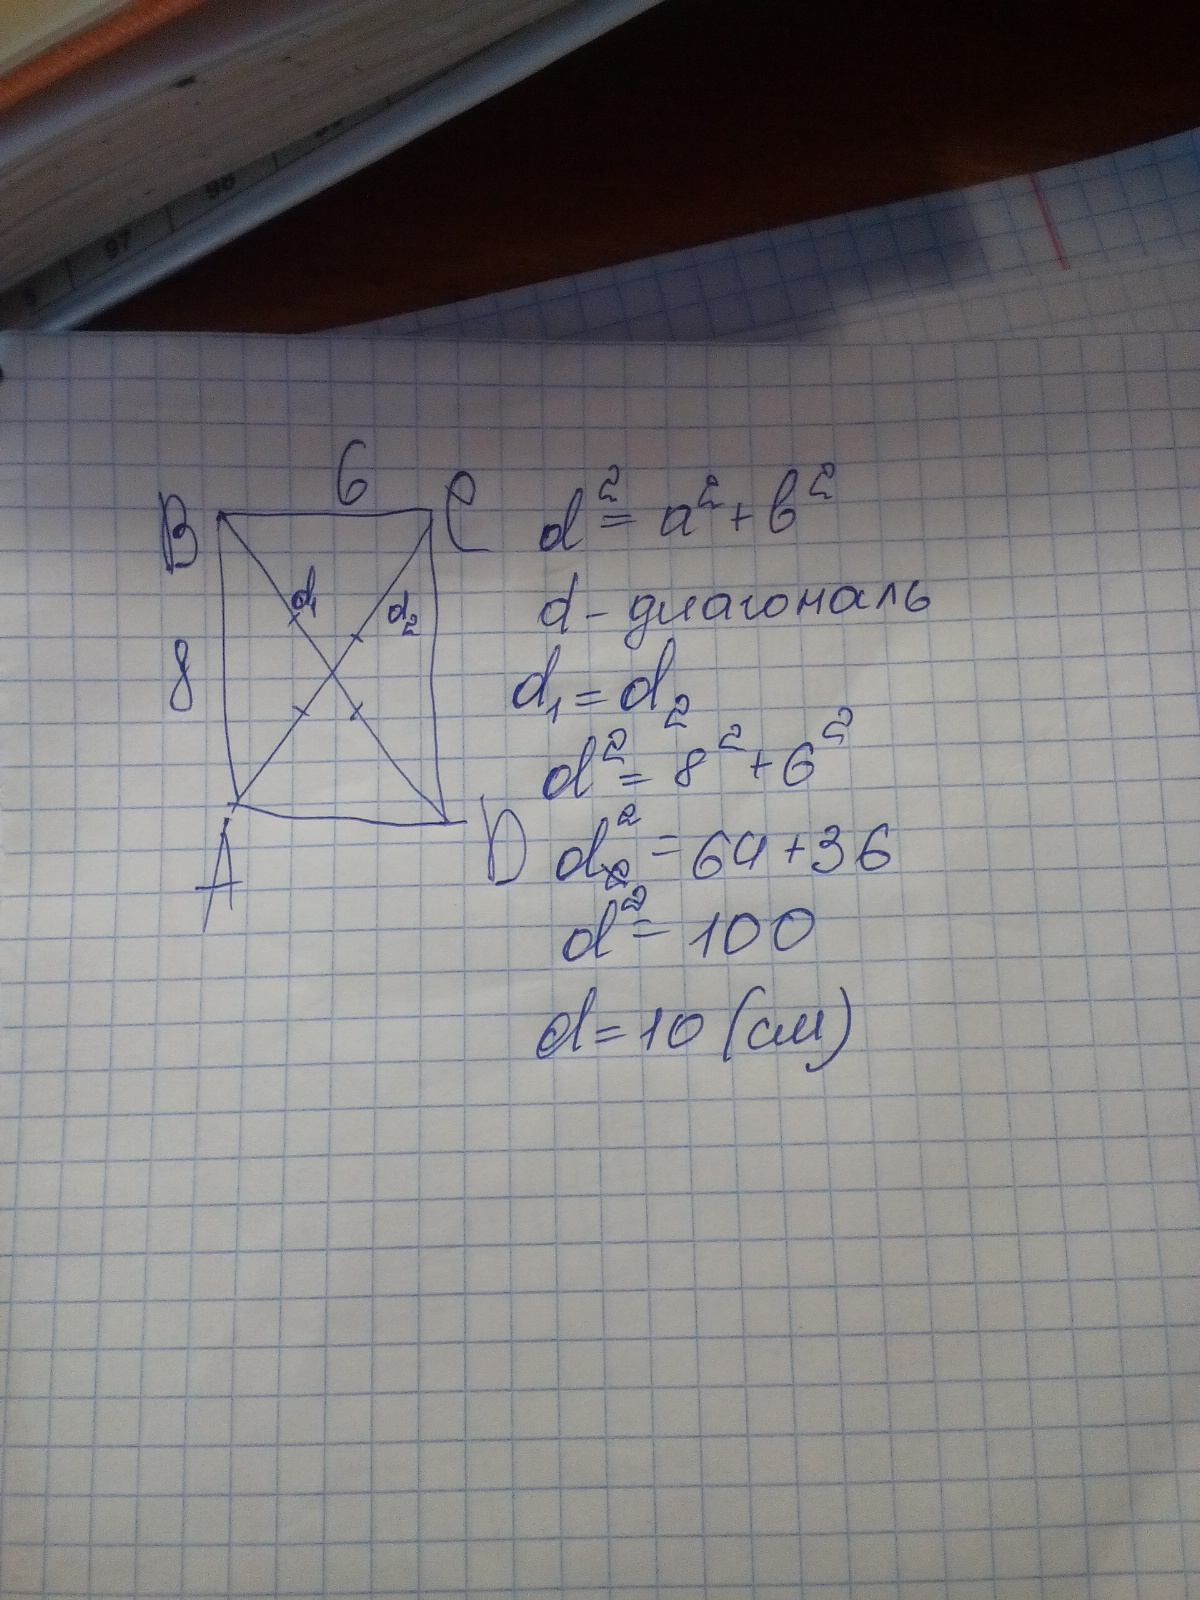 97 98
6
B C
d₁ d₂
8
A D
d² = a² + b²
d - диагональ
d₁ = d₂
d² = 8² + 6²
d² = 64 + 36
d² = 100
d = 10 (см)